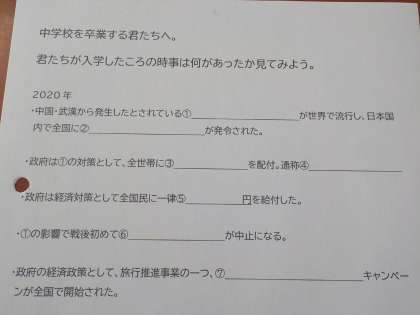 中学校を卒業する君たちへ。
君たちが入学したころの時事は何があったか見てみよう。
2020年
・中国・武漢から発生したとされている①____________________が世界で流行し、日本国
内で全国に②____________________が発令された。
・政府は①の対策として、全世帯に③______________を配付。通称④__________________
・政府は経済対策として全国民に一律⑤____________円を給付した。
・①の影響で戦後初めて⑥__________________が中止になる。
・政府の経済政策として、旅行推進事業の一つ、⑦________________________キャンペー
ンが全国で開始された。